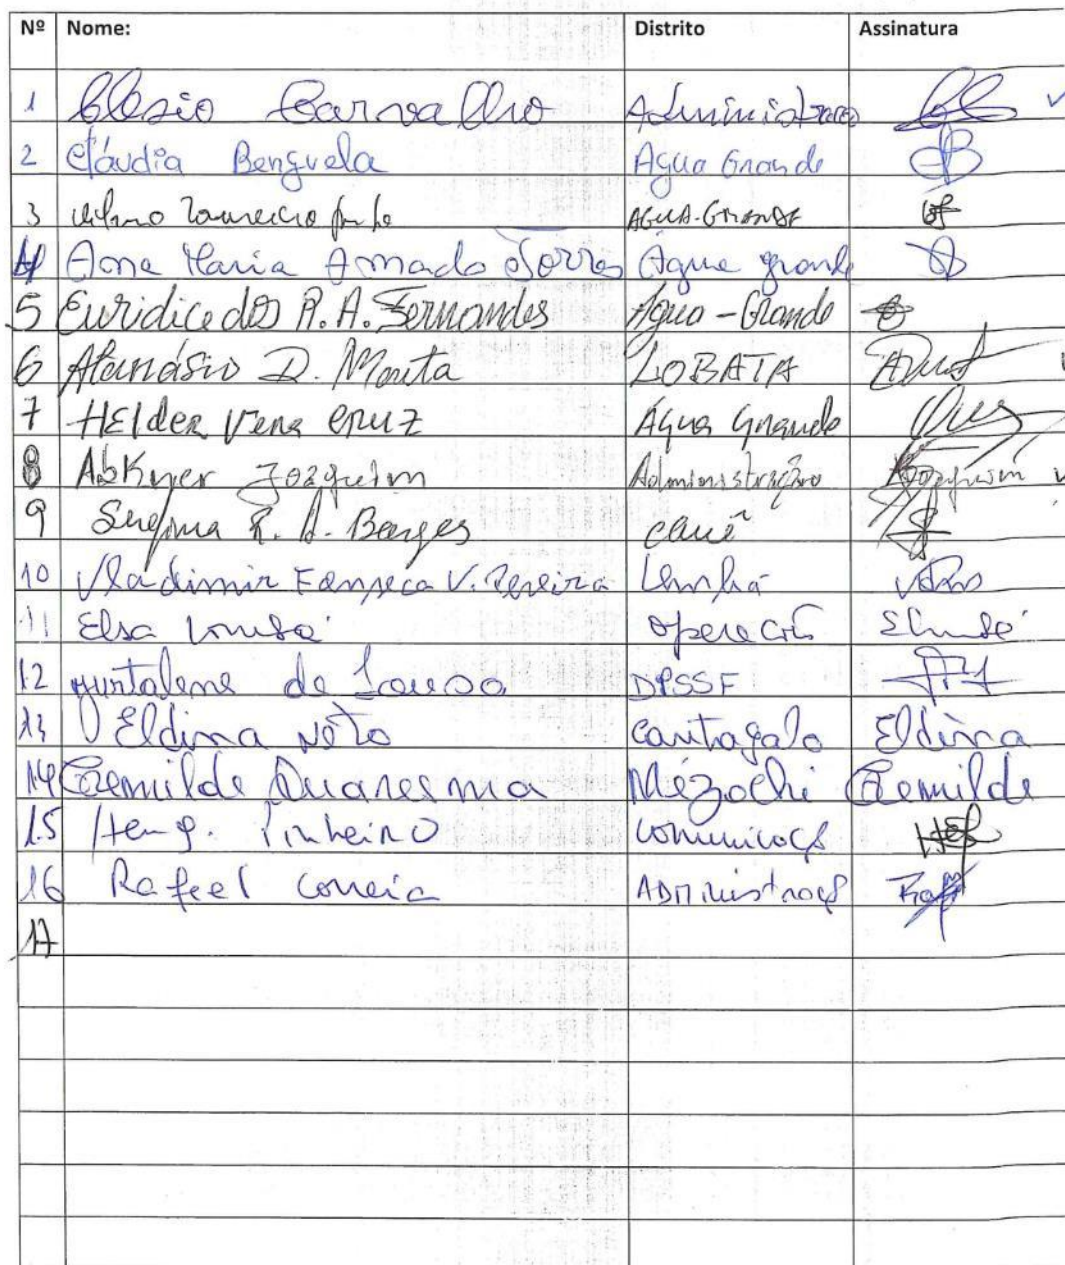 Nº Nome: Distrito Assinatura
1 Clésio Carvalho Administração
2 Cláudia Benguela Agua Grande
3 AGUA-GRANDE
4 Ana Maria Amado Torres Água grande
5 Euridice dos R. A. Fernandes Água-Grande
6 Atanásio D. LOBATA
7 HElder Vera cruz Água Grande
8 Abkner Joaquim Administração
9 R. A. Borges cauê
10 Vladimir Fonseca V. Pereira Lembá
11 Elsa
12 de DPSSF
13 Eldina Neto cantagalo Eldina
14 Cremilde Quaresma Mézochi Cremilde
15 Pinheiro
16 Rafael Correia
17